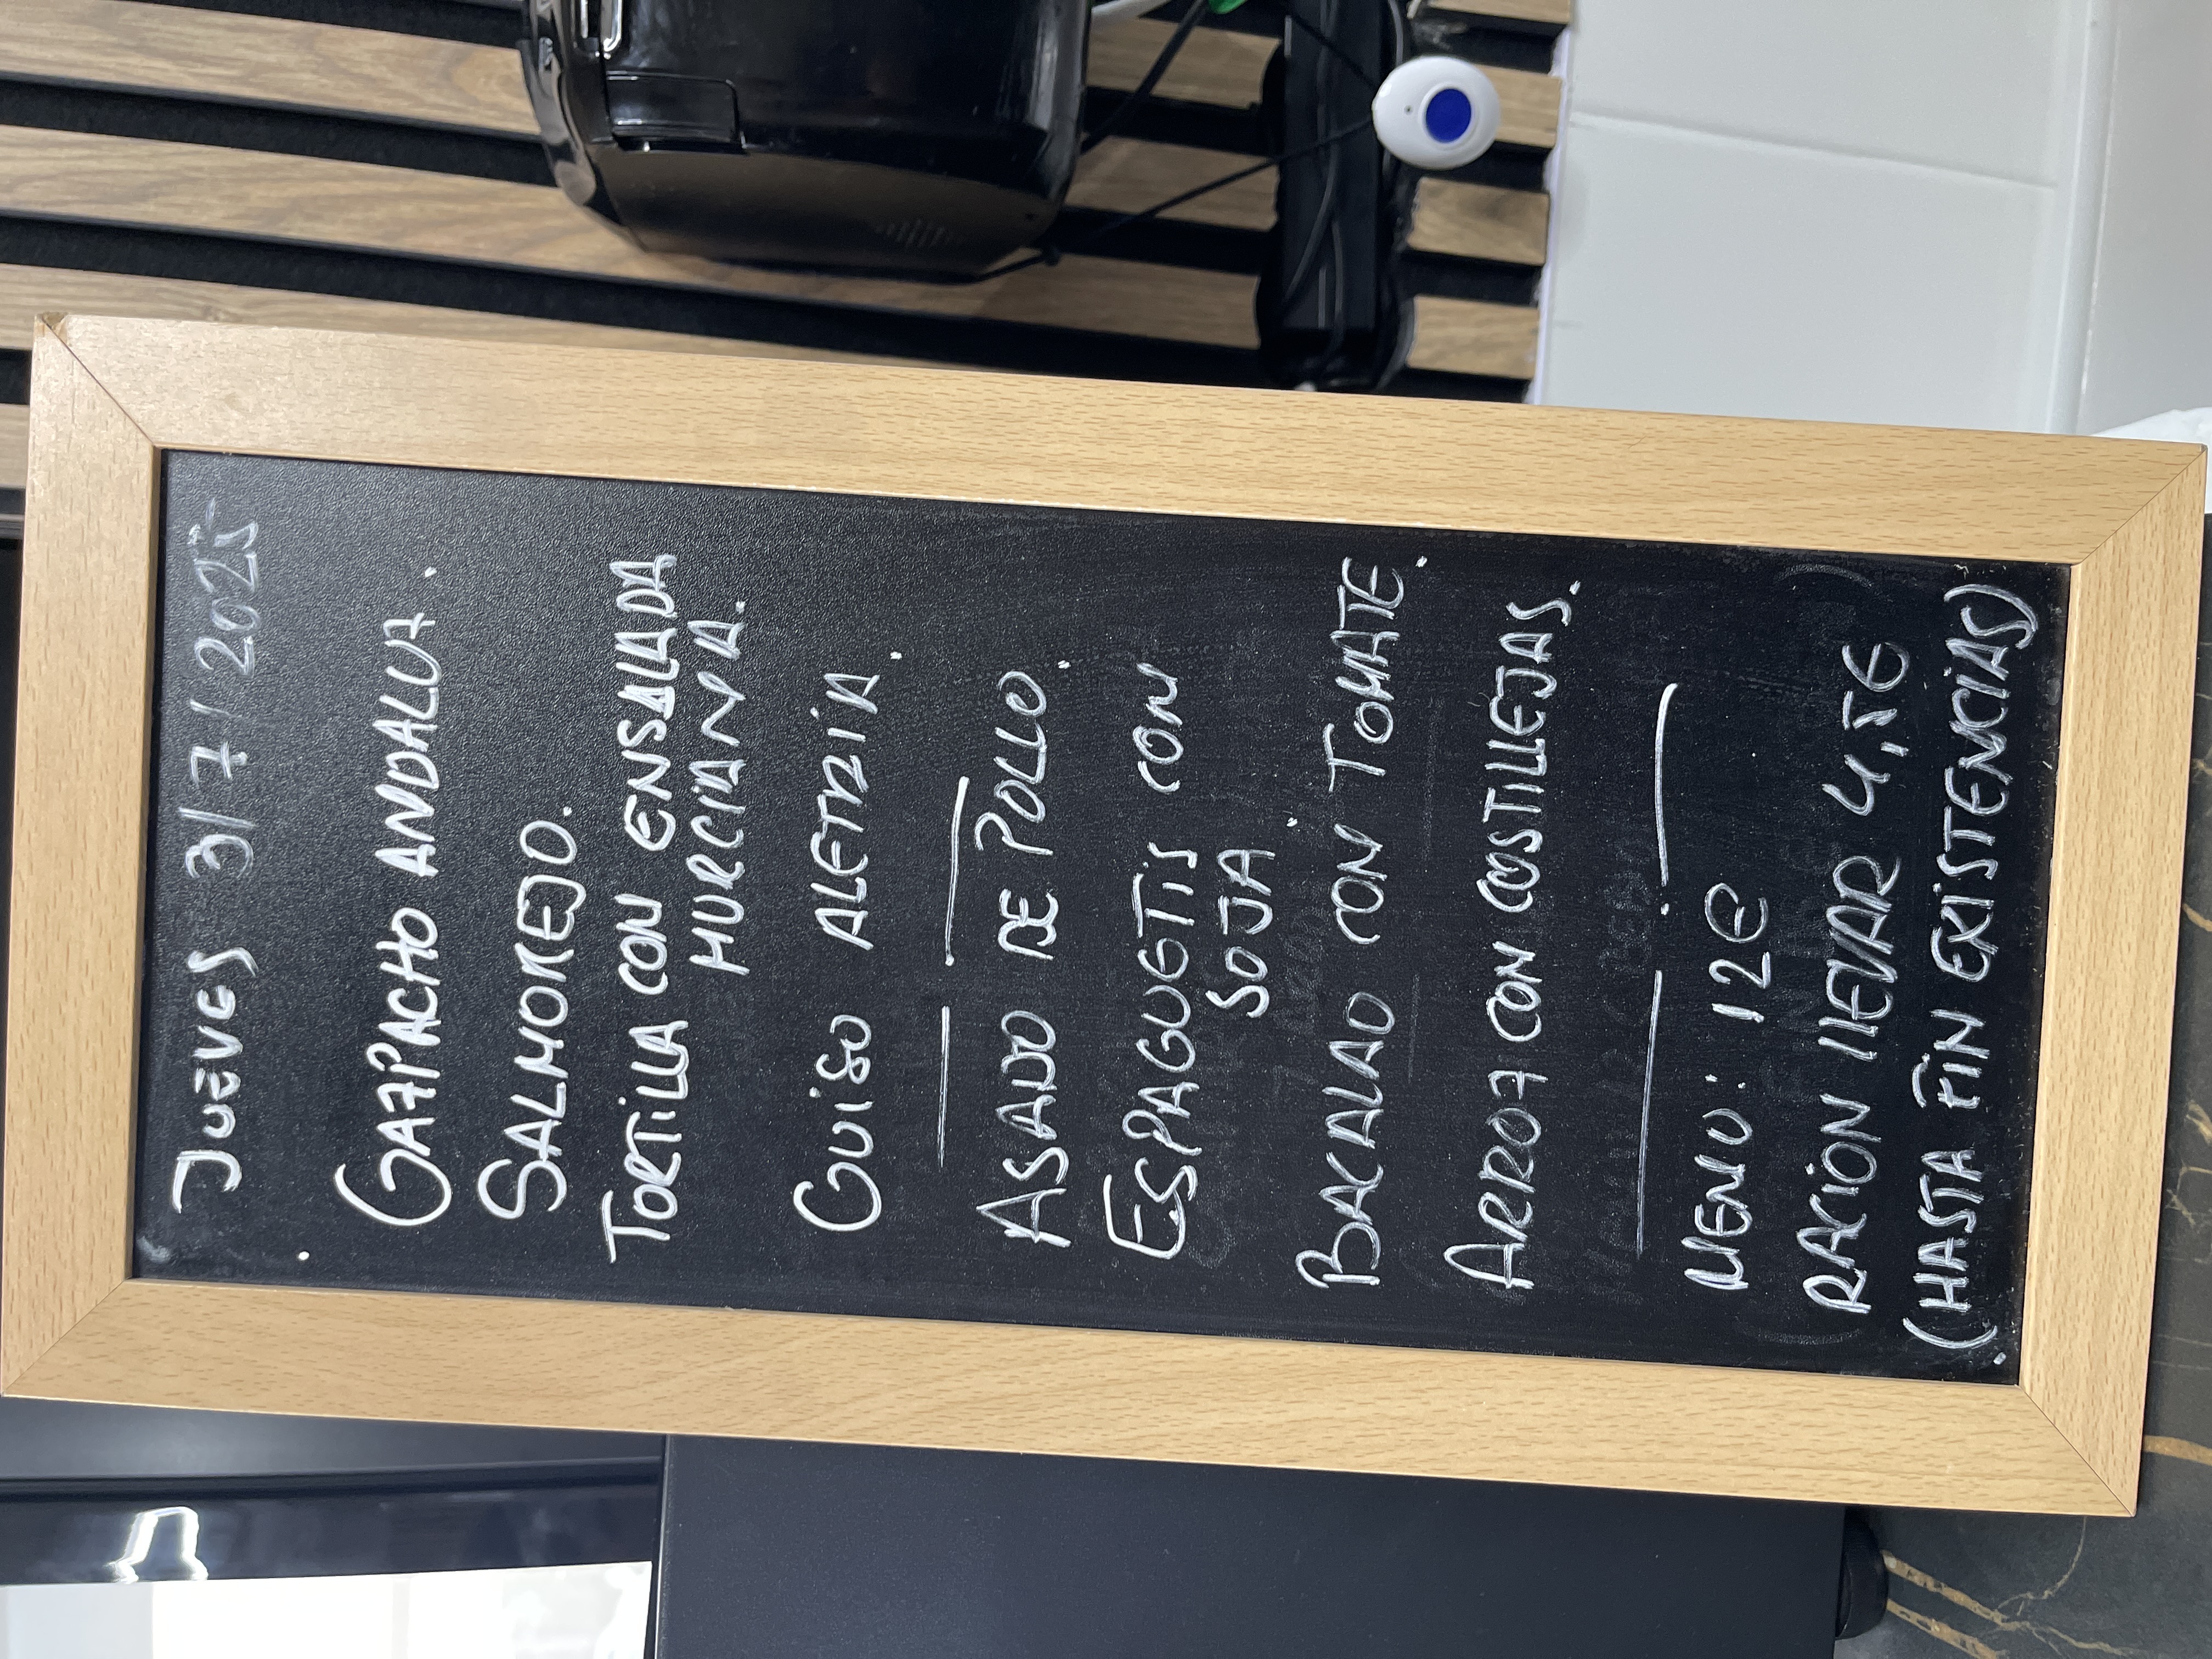 JUEVES 3/7/2025
GAZPACHO ANDALUZ.
SALMOREJO.
TORTILLA CON ENSALADA
MURCIANA.
GUISO ALETRIA.
ASADO DE POLLO.
ESPAGUETIS CON
SOJA
BACALAO CON TOMATE.
ARROZ CON COSTILLEJAS.
MENU: 12€
RACIÓN LLEVAR 4,5€
(HASTA FIN EXISTENCIAS)